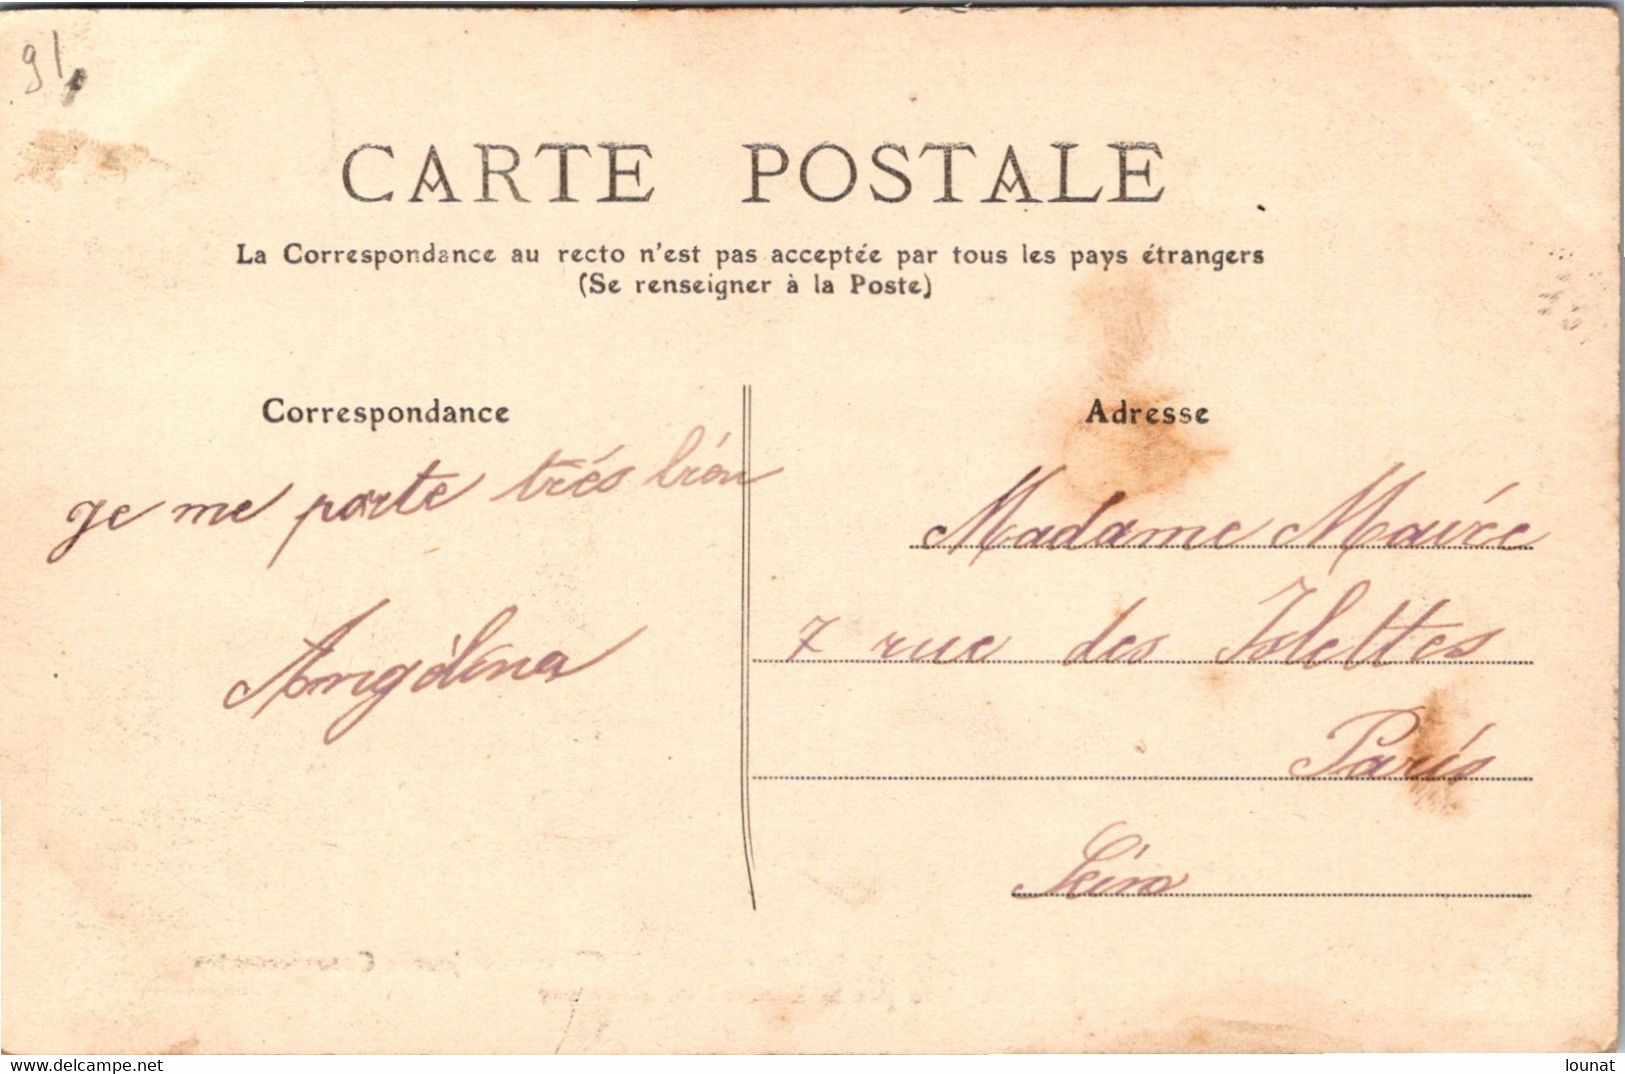 91
CARTE POSTALE
La Correspondance au recto n'est pas acceptée par tous les pays étrangers
(Se renseigner à la Poste)
Correspondance
je me porte trés bién
Angélina
Adresse
Madame Maire
7 rue des Islettes
Paris
Seine
https://www.delcampe.net
lounat